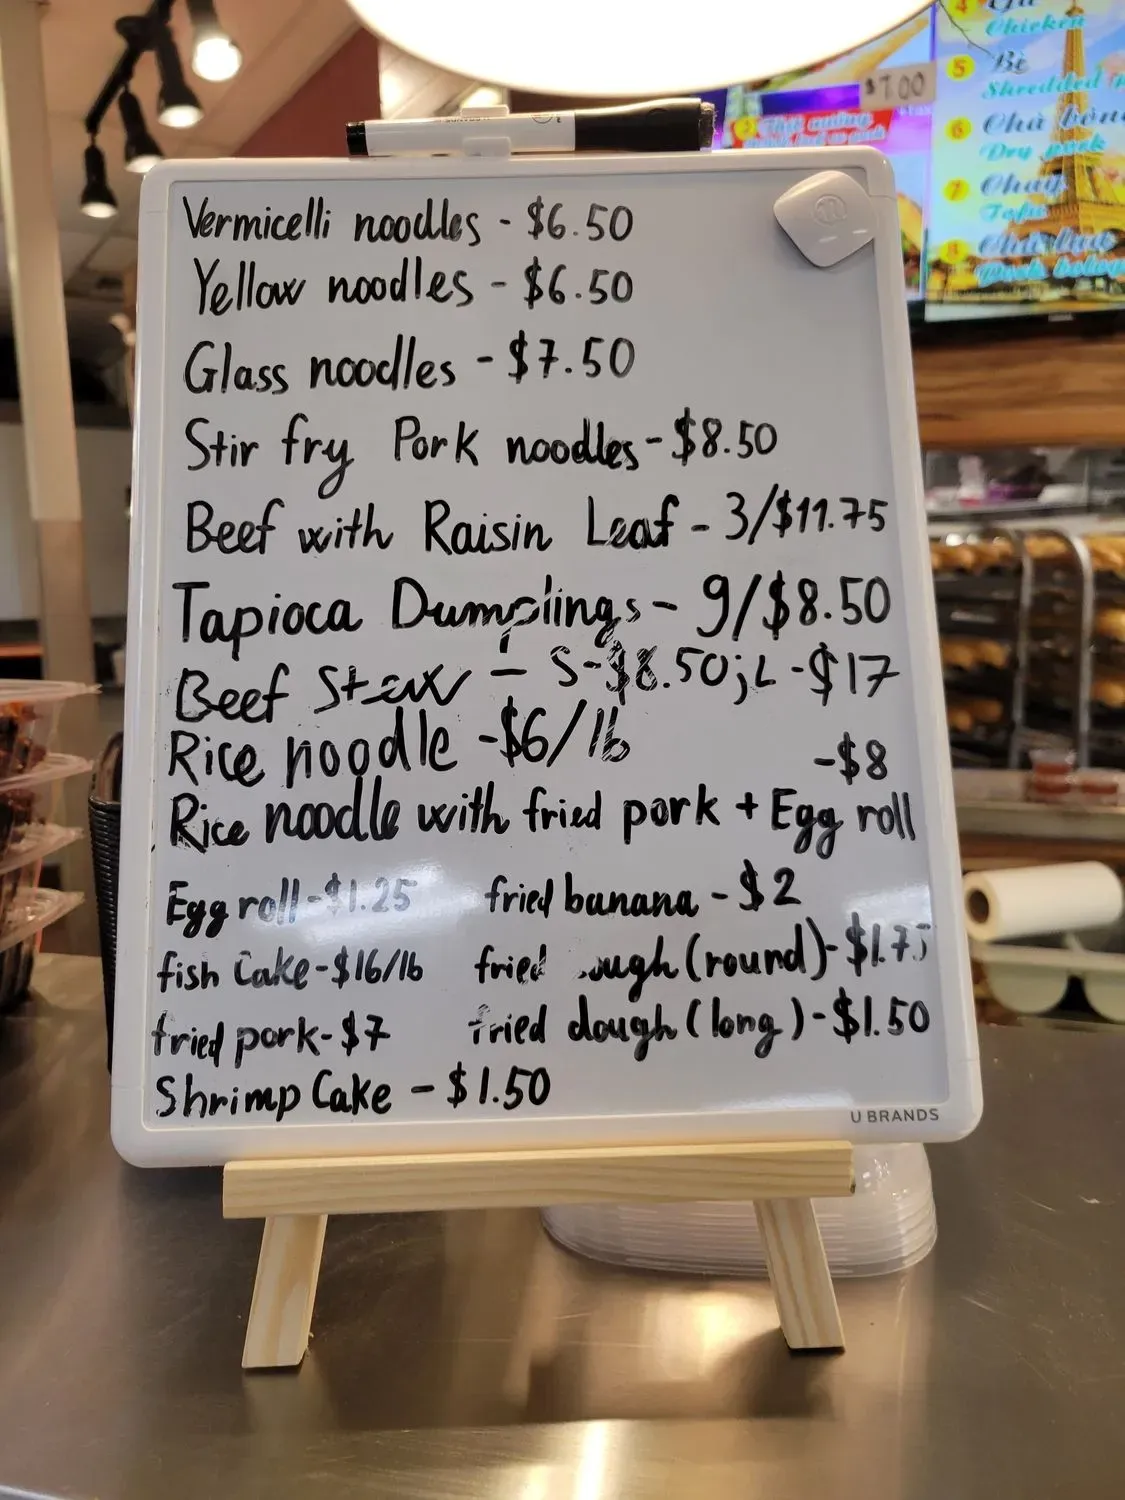 $7.00
4 Gà
Chicken
5 Bì
Shredded
6 Chà bông
Dry pork
7 Chay
Tofu
8 Chả lụa
Pork
Vermicelli noodles - $6.50
Yellow noodles - $6.50
Glass noodles - $7.50
Stir fry Pork noodles - $8.50
Beef with Raisin Leaf - 3/$11.75
Tapioca Dumplings - 9/$8.50
Beef Stew - S-$8.50; L-$17
Rice noodle - $6/lb
-$8
Rice noodle with fried pork + Egg roll
Egg roll - $1.25 fried banana - $2
fish Cake - $16/lb fried ough (round) - $1.75
fried pork - $7 fried dough (long) - $1.50
Shrimp Cake - $1.50
U BRANDS